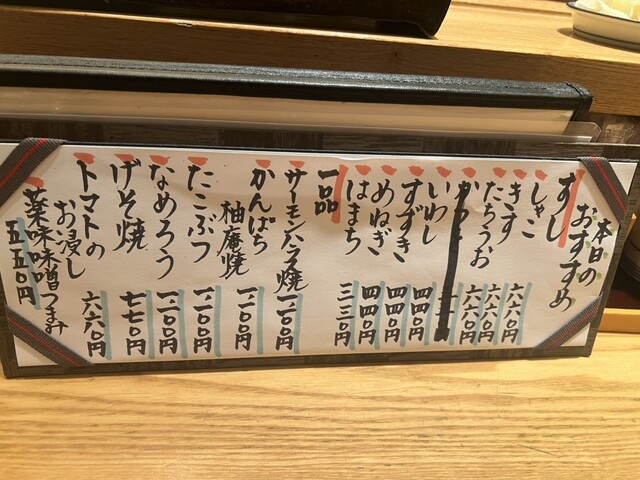 本日の
おすすめ
すし
しゃこ 六六〇円
きす 六六〇円
たちうお 六六〇円
いわし 四四〇円
すずき 四四〇円
めねぎ 四四〇円
はまち 三三〇円
一品
サーモンハラス焼 一一〇〇円
かんぱち
柚庵焼 一一〇〇円
たこぶつ 一一〇〇円
なめろう 一一〇〇円
げそ焼 七七〇円
トマトの
お浸し 六六〇円
薬味味噌つまみ
五五〇円